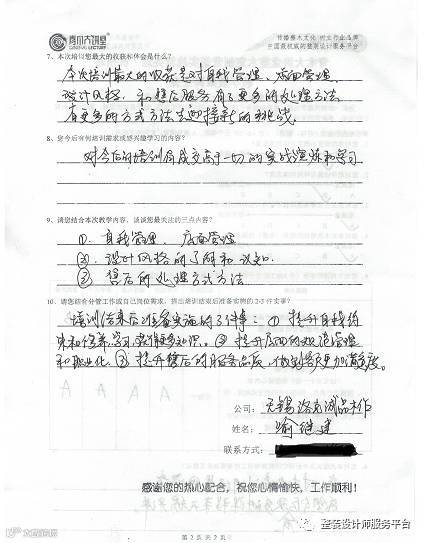 博尔大讲堂
传播整木文化 树立行业品牌
全国最权威的整装设计服务平台
7、本次培训您最大的收获和体会是什么？
本次培训最大的收获是对自我管理、店面管理
设计风格、和售后服务有了更多的处理方法
有更多的方式方法去迎接新的挑战.
8、您今后有何培训需求或感兴趣学习的内容？
对今后的培训有感兴高于一切的实战演练和学习
9、请您结合本次教学内容，谈谈您最关注的三点内容？
①. 自我管理、店面管理
②. 设计风格的了解和认知.
③ 售后的处理方式方法
10、请您结合分管工作或自己岗位需求，提出培训结束后准备实施的2-3件实事？
培训结束后准备实施的3件事：① 提升自我约
束和修养,学习 更多知识。② 提升店面的规范管理
和职业化. ③ 提升售后的服务品质，做到客户更加满意度。
公司：无锡 木作
姓名：喻继建
联系方式：
感谢您的热心配合，祝您心情愉快，工作顺利！
第 2 页 共 2 页
整装设计师服务平台